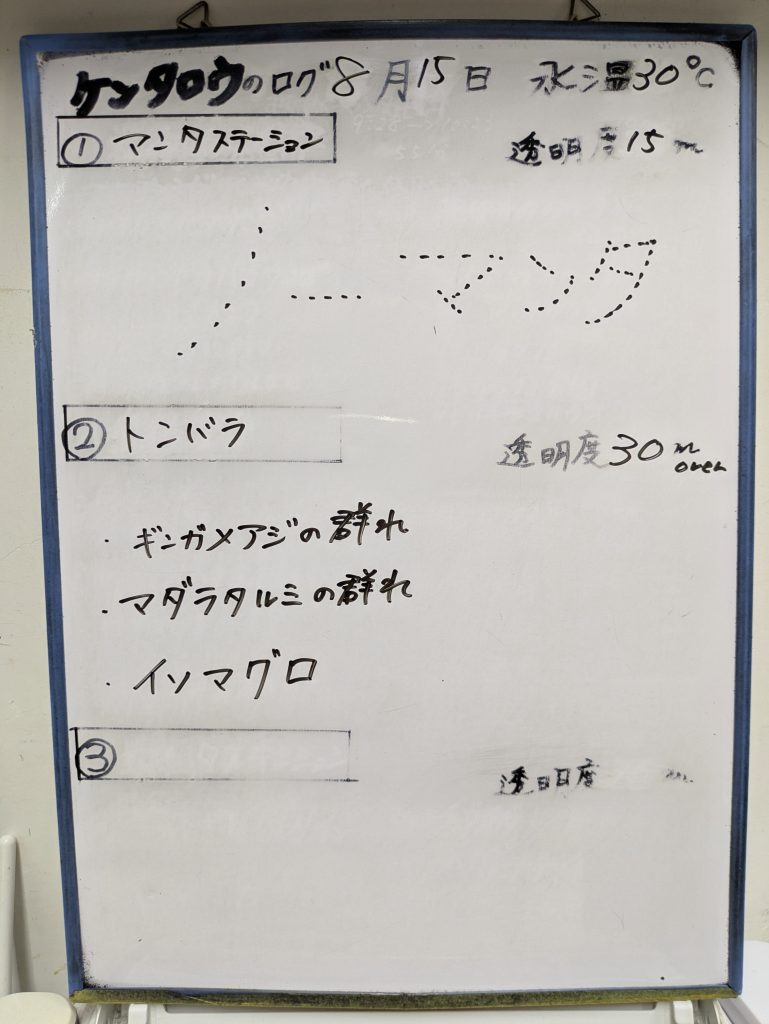 ケンタロウのログ 8月15日 水温30℃
① マンタステーション 透明度15m
ノーマンタ
② トンバラ 透明度30m over
・ギンガメアジの群れ
・マダラタルミの群れ
・イソマグロ
③ 透明度 m